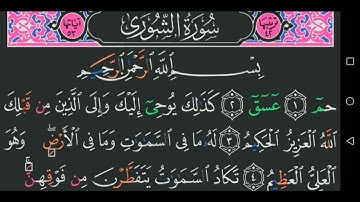 ترتيبها ٤٢
سُورَةُ الشُّورَىٰ
آياتها ٥٣
بِسْمِ ٱللَّهِ ٱلرَّحْمَٰنِ ٱلرَّحِيمِ
حمٓ ١ عٓسٓقٓ ٢ كَذَٰلِكَ يُوحِىٓ إِلَيْكَ وَإِلَى ٱلَّذِينَ مِن قَبْلِكَ
ٱللَّهُ ٱلْعَزِيزُ ٱلْحَكِيمُ ٣ لَهُۥ مَا فِى ٱلسَّمَٰوَٰتِ وَمَا فِى ٱلْأَرْضِ ۖ وَهُوَ
ٱلْعَلِىُّ ٱلْعَظِيمُ ٤ تَكَادُ ٱلسَّمَٰوَٰتُ يَتَفَطَّرْنَ مِن فَوْقِهِنَّ ۚ